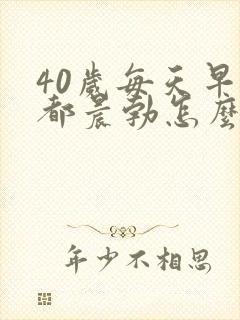 40歲每天早
都晨勃怎麼
年少不相思